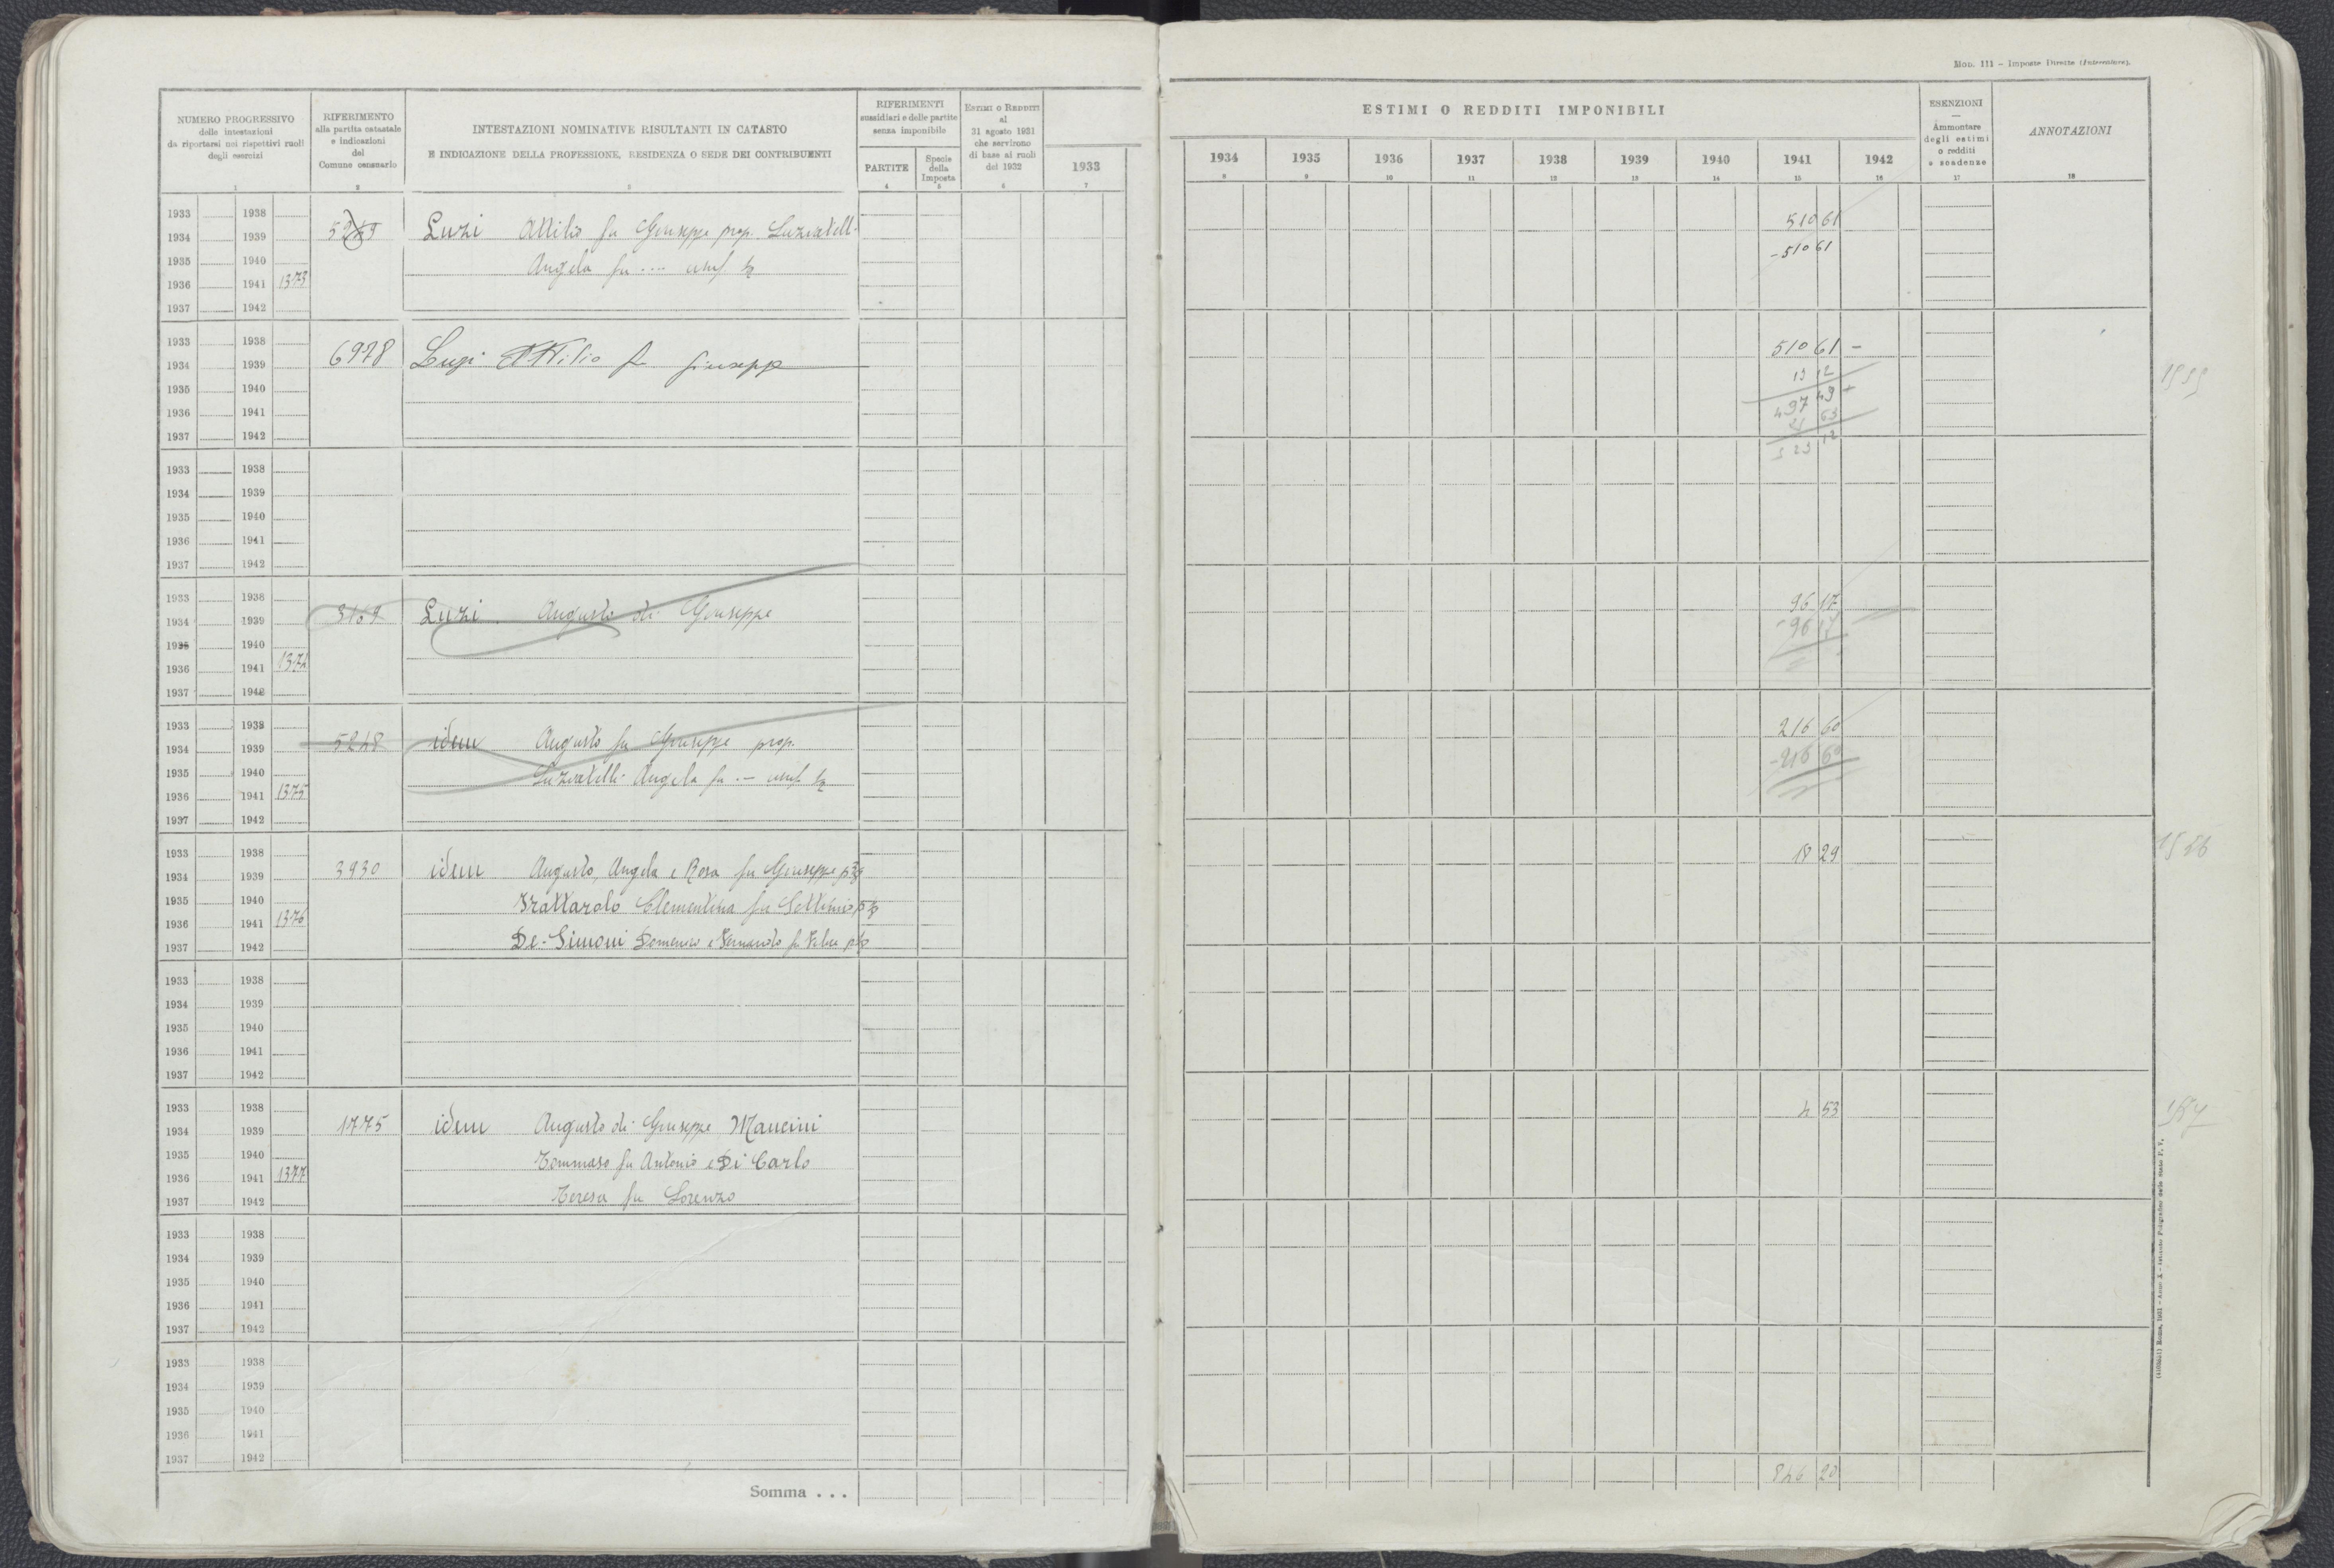 Mod. 111 – Imposte Dirette (Intercalare).
NUMERO PROGRESSIVO
delle intestazioni
da riportarsi nei rispettivi ruoli
degli esercizi
1
RIFERIMENTO
alla partita catastale
e indicazioni
del
Comune censuario
2
INTESTAZIONI NOMINATIVE RISULTANTI IN CATASTO
E INDICAZIONE DELLA PROFESSIONE, RESIDENZA O SEDE DEI CONTRIBUENTI
3
RIFERIMENTI
sussidiari e delle partite
senza imponibile
PARTITE
4
Specie
della
Imposta
5
ESTIMI O REDDITI
al
31 agosto 1931
che servirono
di base ai ruoli
del 1932
6
ESTIMI O REDDITI IMPONIBILI
1933 1934 1935 1936 1937 1938 1939 1940 1941 1942
7 8 9 10 11 12 13 14 15 16
ESENZIONI
—
Ammontare
degli estimi
o redditi
e scadenze
17
ANNOTAZIONI
18
1933 1938
1934 1939 Luzi Attilio fu Giuseppe prop. Luzratelli 510 61
1935 1940 Angela fu .... usuf. - 510 61
1936 1941 1373
1937 1942
1933 1938
1934 1939 6978 Luzi Attilio fu Giuseppe 510 61 –
1935 1940 13 12
1936 1941 497 49 +
1937 1942
23 12
1933 1938
1934 1939
1935 1940
1936 1941
1937 1942
1933 1938
1934 1939 3169 Luzi Augusto di Giuseppe 96 17
1935 1940 - 96 17
1936 1941 1374
1937 1942
1933 1938
1934 1939 5248 idem Augusto fu Giuseppe prop. 216 60
1935 1940 Luzratelli Angela fu .— usuf. - 216 60
1936 1941 1375
1937 1942
1933 1938
1934 1939 3930 idem Augusto, Angela e Rosa fu Giuseppe 18 29
1935 1940 Trattarolo Clementina fu Settimio
1936 1941 1376
1937 1942 De-Simoni Domenico e Fernando fu Felice
1933 1938
1934 1939
1935 1940
1936 1941
1937 1942
1933 1938
1934 1939 1775 idem Augusto di Giuseppe, Mancini 4 53
1935 1940 Tommaso fu Antonio e Di Carlo
1936 1941 1377
1937 1942 Teresa fu Lorenzo
1933 1938
1934 1939
1935 1940
1936 1941
1937 1942
1933 1938
1934 1939
1935 1940
1936 1941
1937 1942
Somma . . . 846 20